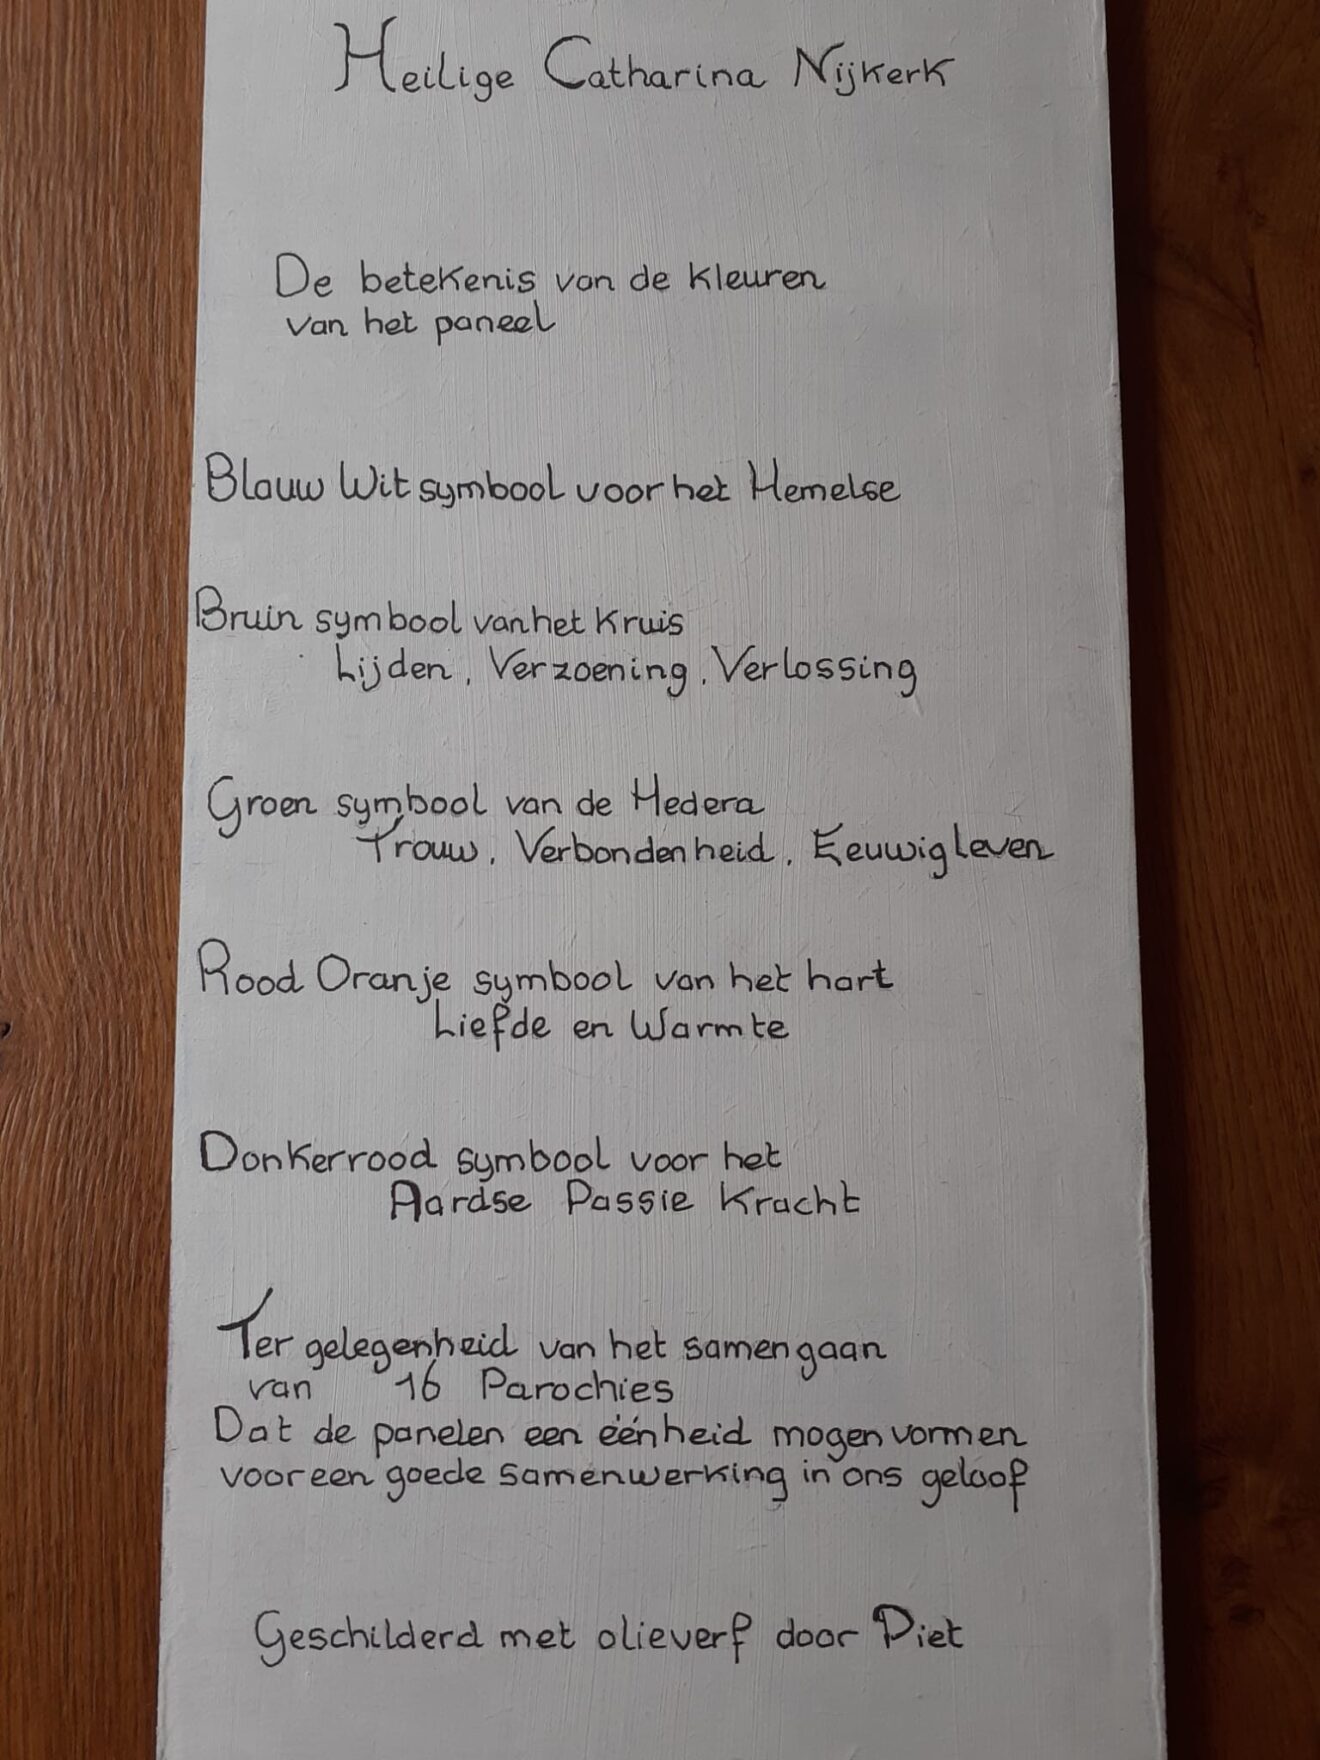 Heilige Catharina Nijkerk
De betekenis van de kleuren
van het paneel
Blauw Wit symbool voor het Hemelse
Bruin symbool van het Kruis
Lijden, Verzoening, Verlossing
Groen symbool van de Hedera
Trouw, Verbondenheid, Eeuwig leven
Rood Oranje symbool van het hart
Liefde en Warmte
Donkerrood symbool voor het
Aardse Passie Kracht
Ter gelegenheid van het samengaan
van 16 Parochies
Dat de panelen een éénheid mogen vormen
voor een goede samenwerking in ons geloof
Geschilderd met olieverf door Piet